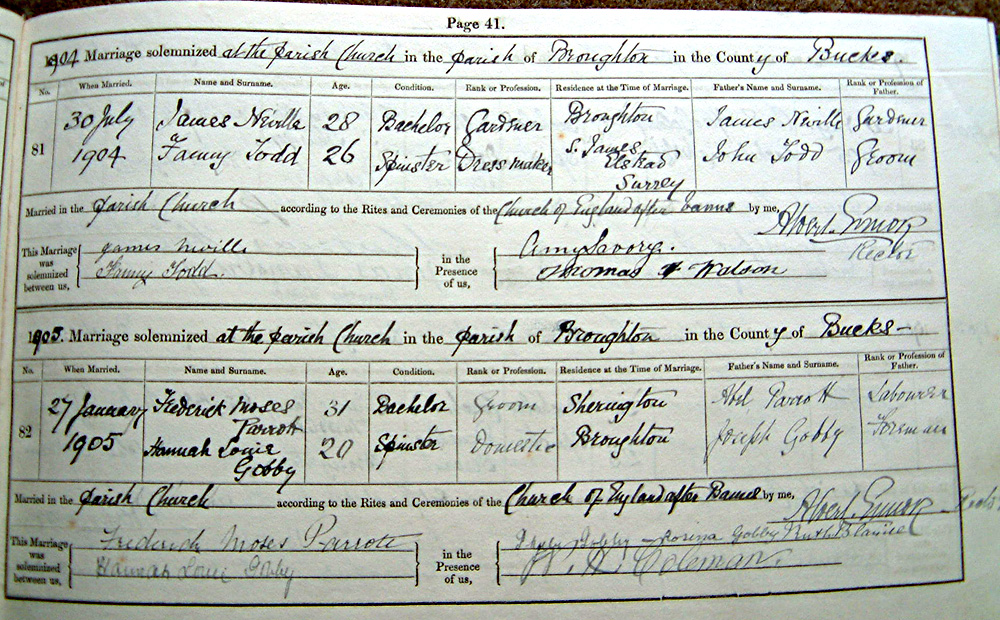 Page 41.
1904 Marriage solemnized at the Parish Church in the Parish of Broughton in the County of Bucks.
No. When Married. Name and Surname. Age. Condition. Rank or Profession. Residence at the Time of Marriage. Father's Name and Surname. Rank or Profession of Father.
81 30 July 1904 James Neville 28 Bachelor Gardener Broughton James Neville Gardener
Fanny Todd 26 Spinster Dressmaker S. James Elstead Surrey John Todd Groom
Married in the Parish Church according to the Rites and Ceremonies of the Church of England after Banns by me, Rector
This Marriage was solemnized between us, James Neville in the Presence of us, Amy Savory.
Fanny Todd Thomas Watson
1905. Marriage solemnized at the Parish Church in the Parish of Broughton in the County of Bucks
No. When Married. Name and Surname. Age. Condition. Rank or Profession. Residence at the Time of Marriage. Father's Name and Surname. Rank or Profession of Father.
82 27 January 1905 Frederick Moses Parrott 31 Bachelor Groom Sherington Abel Parrott Labourer
Hannah Louie Gobby 20 Spinster Domestic Broughton Joseph Gobby Foreman
Married in the Parish Church according to the Rites and Ceremonies of the Church of England after Banns by me,
This Marriage was solemnized between us, Frederick Moses Parrott in the Presence of us, Gobby Rosina Gobby Ruth
Hannah Louie Gobby Coleman.